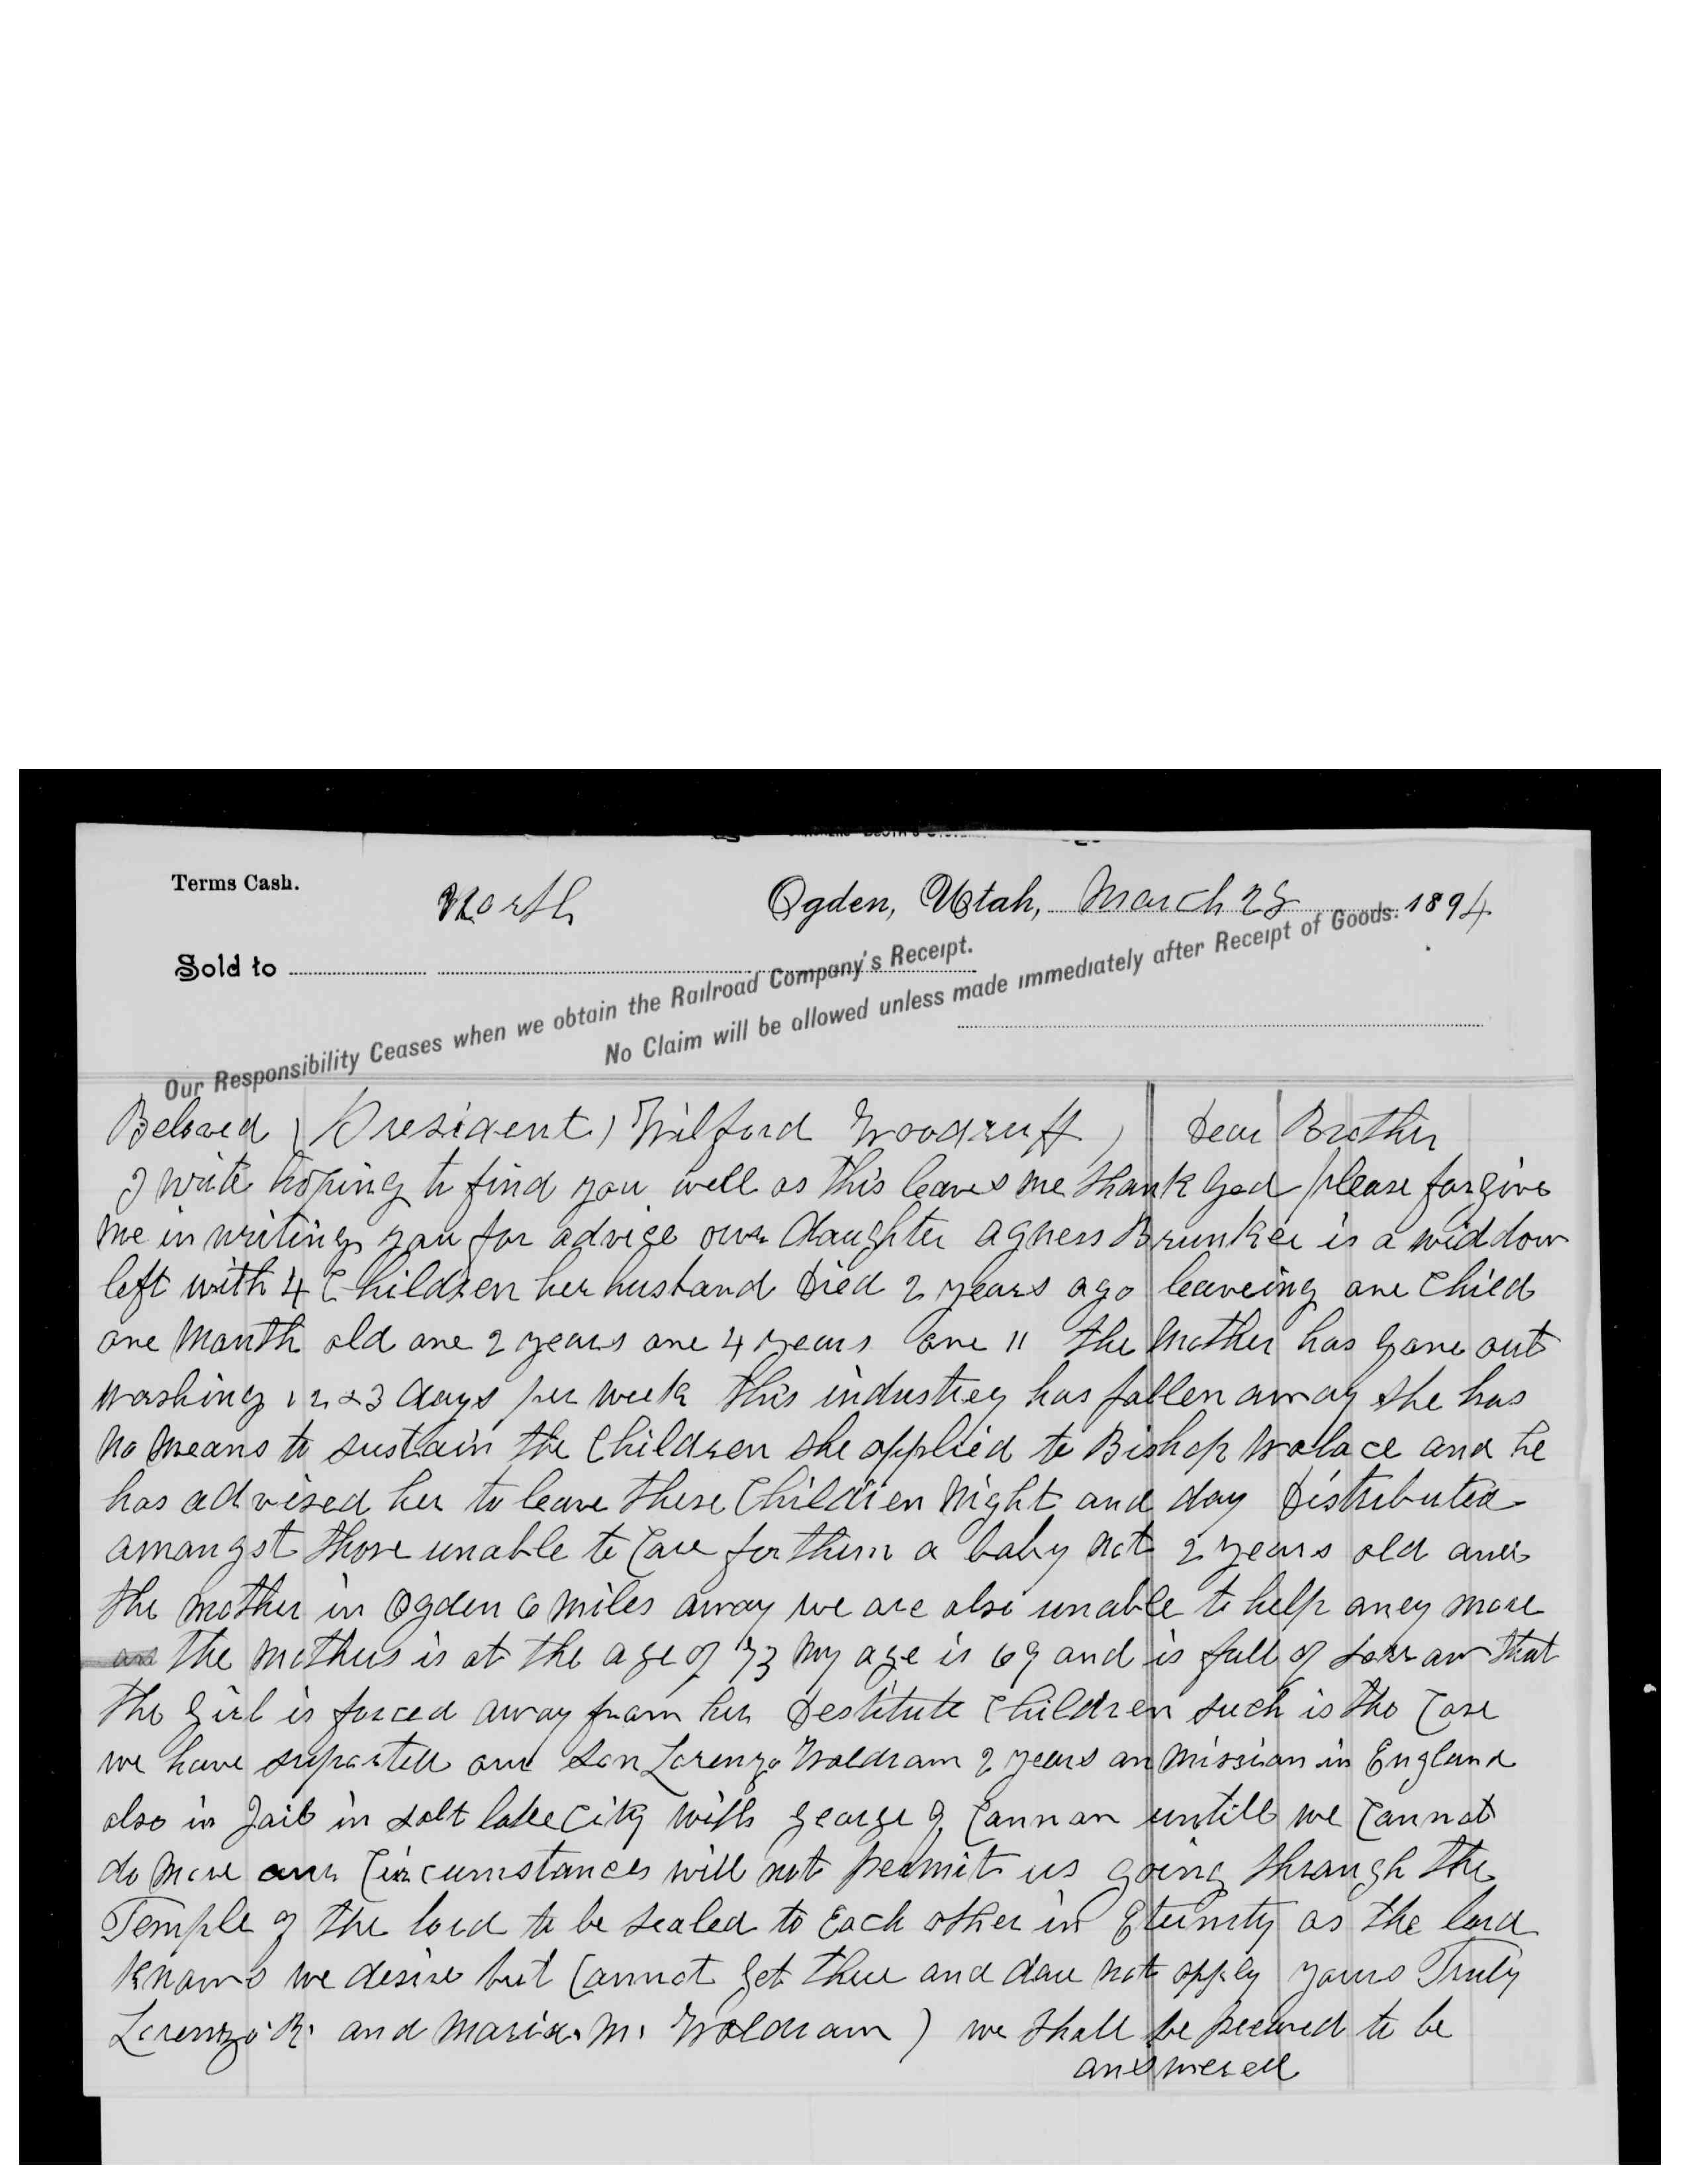 Terms Cash.
North Ogden, Utah, March 28 1894
Sold to
Our Responsibility Ceases when we obtain the Railroad Company's Receipt.
No Claim will be allowed unless made immediately after Receipt of Goods.
Beloved (President) Wilford Woodruff) Dear Brother
I write hoping to find you well as this leaves me thank God please forgive
me in writing you for advice our daughter Agness Brunker is a widdow
left with 4 Children her husband Died 2 years ago leaveing one Child
one Month old one 2 years one 4 years one 11 the Mother has gone out
washing 1 2 & 3 days per week this industrey has fallen away she has
no means to sustain the Children she applied to Bishop Walace and he
has advised her to leave these Children Night and day Distributed
amongst those unable to Care for them a baby not 2 years old and
the mother in Ogden 6 miles away we are also unable to help aney more
and the mothers is at the age of 73 my age is 69 and is full of sorrow that
the Girl is forced away from her Destitute Children such is the Case
we have suported our son Lorenzo Woldram 2 years on Mission in England
also in Jail in Salt lake City with George Q Cannon untill we Cannot
do more our Circumstances will not permit us going through the
Temple of the lord to be sealed to Each other in Eternity as the lord
knows we desire but Cannot get there and dare not apply yours Truly
Lorenzo R. and Maria. M. Woldram) we shall be pleased to be
answered